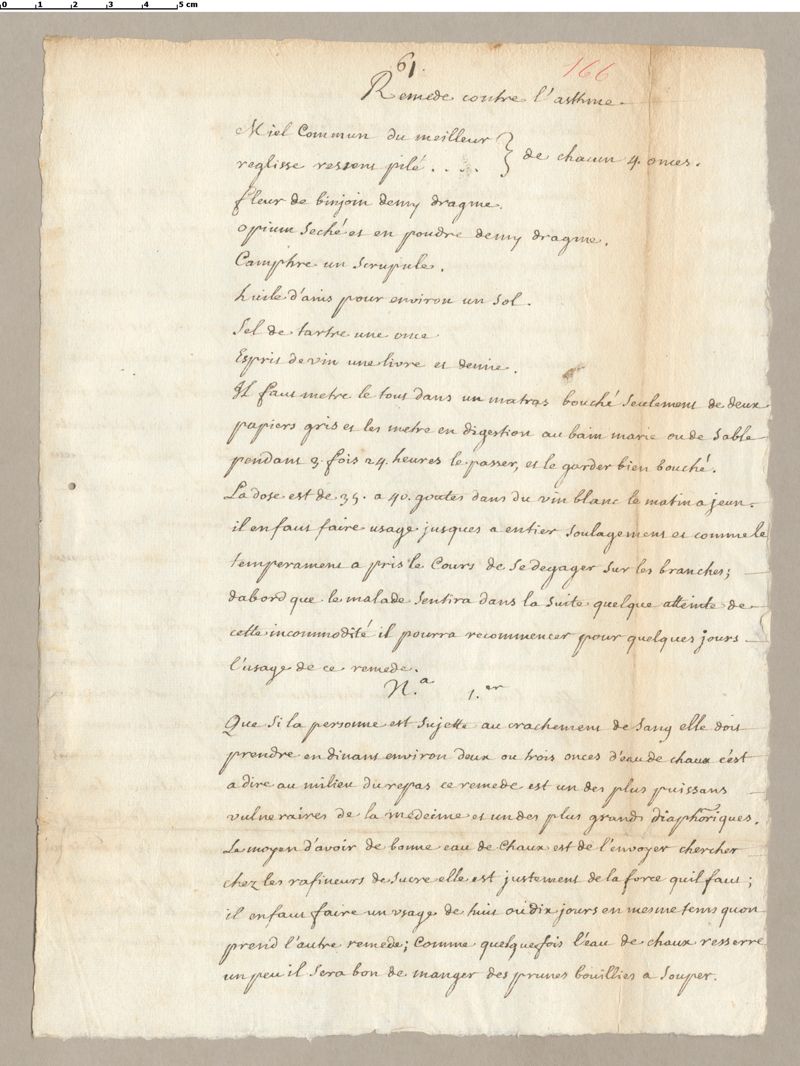 0 1 2 3 4 5 cm
61.
166
Remede contre l'asthme.
Miel Commun du meilleur
reglisse ressent pilé . . . . } de chacun 4. onces.
fleur de binjoin demy dragme.
opium Seché et en poudre demy dragme.
Camphre un Scrupule.
huile d'anis pour environ un Sol.
Sel de tartre une once
Esprit de vin une livre et demie.
Il faut metre le tout dans un matras bouché Seulement de deux
papiers gris et les metre en digestion au bain marie ou de Sable
pendant 3. fois 24. heures le passer, et le garder bien bouché.
La dose est de 35. a 40. goutes dans du vin blanc le matin a jeun.
il en faut faire usage jusques a entier Soulagement et comme le
temperament a pris le Cours de Se degager Sur les branches;
dabord que le malade Sentira dans la Suite quelque atteinte de
cette incommodité il pourra recommencer pour quelques jours
l'usage de ce remede.
N.a 1.er
Que Si la personne est Sujette au crachement de Sang elle doit
prendre en dinant environ deux ou trois onces d'eau de chaux c'est
a dire au milieu du repas ce remede est un des plus puissans
vulneraires de la medecine et un des plus grands diaphoriques.
Le moyen d'avoir de bonne eau de Chaux est de l'envoyer chercher
chez les rafineurs de Sucre elle est justement de la force quil faut;
il en faut faire un usage de huit ou dix jours en mesme tems quon
prend l'autre remede; Comme quelquefois l'eau de chaux resserre
un peu il Sera bon de manger des prunes bouillies a Souper.